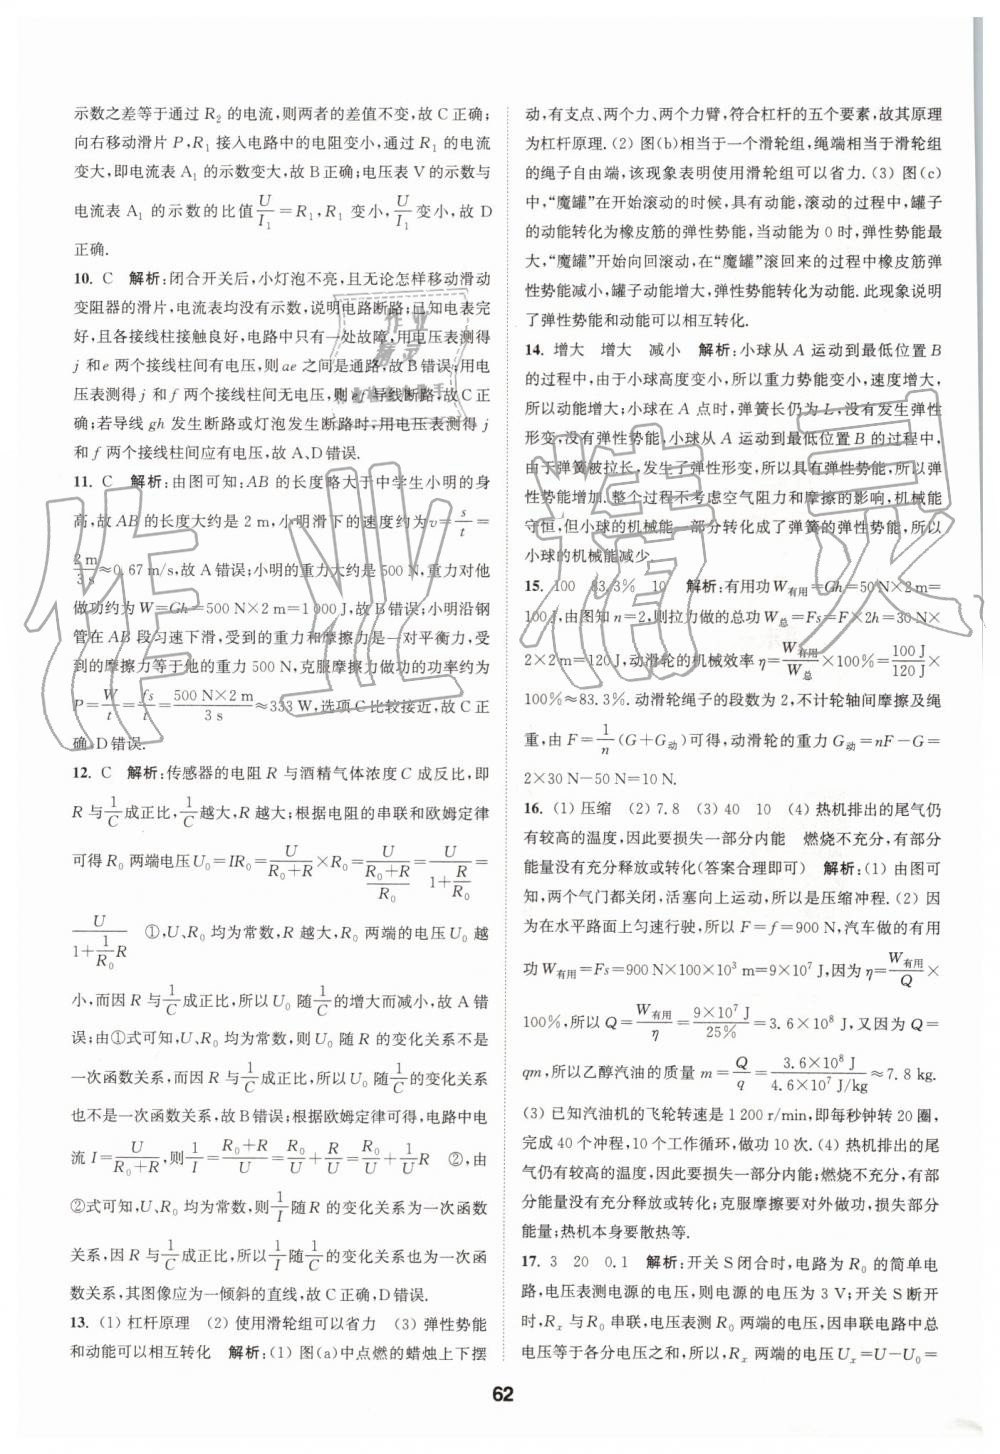 示数之差等于通过 R₂ 的电流,则两者的差值不变,故 C 正确;
向右移动滑片 P,R₁ 接入电路中的电阻变小,通过 R₁ 的电流
变大,即电流表 A₁ 的示数变大,故 B 正确;电压表 V 的示数与
电流表 A₁ 的示数的比值 U/I₁ = R₁,R₁ 变小,U/I₁ 变小,故 D
正确.
10. C 解析:闭合开关后,小灯泡不亮,且无论怎样移动滑动
变阻器的滑片,电流表均没有示数,说明电路断路;已知电表完
好,且各接线柱接触良好,电路中只有一处故障,用电压表测得
j 和 e 两个接线柱间有电压,则 ae 之间是通路,故 B 错误;用电
压表测得 j 和 f 两个接线柱间无电压,则 ef 导线断路,故 C 正
确;若导线 gh 发生断路或灯泡发生断路时,用电压表测得 j
和 f 两个接线柱间应有电压,故 A、D 错误.
11. C 解析:由图可知:AB 的长度略大于中学生小明的身
高,故 AB 的长度大约是 2 m,小明滑下的速度约为 v = s/t =
2 m/3 s ≈ 0.67 m/s,故 A 错误;小明的重力大约是 500 N,重力对他
做功约为 W=Gh=500 N×2 m=1 000 J,故 B 错误;小明沿钢
管在 AB 段匀速下滑,受到的重力和摩擦力是一对平衡力,受
到的摩擦力等于他的重力 500 N,克服摩擦力做功的功率约为
P = W/t = fs/t = 500 N×2 m/3 s ≈ 333 W,选项 C 比较接近,故 C 正
确、D 错误.
12. C 解析:传感器的电阻 R 与酒精气体浓度 C 成反比,即
R 与 1/C 成正比,1/C 越大,R 越大;根据电阻的串联和欧姆定律
可得 R₀ 两端电压 U₀ = IR₀ = U/(R₀+R) × R₀ = U/((R₀+R)/R₀) = U/(1+R/R₀) =
U/(1+(1/R₀)R) ①,U、R₀ 均为常数,R 越大,R₀ 两端的电压 U₀ 越
小,而因 R 与 1/C 成正比,所以 U₀ 随 1/C 的增大而减小,故 A 错
误;由①式可知,U、R₀ 均为常数,则 U₀ 随 R 的变化关系不是
一次函数关系,而因 R 与 1/C 成正比,所以 U₀ 随 1/C 的变化关系
也不是一次函数关系,故 B 错误;根据欧姆定律可得,电路中电
流 I = U/(R₀+R),则 1/I = (R₀+R)/U = R₀/U + R/U = R₀/U + (1/U)R ②,由
②式可知,U、R₀ 均为常数,则 1/I 随 R 的变化关系为一次函数
关系,因 R 与 1/C 成正比,所以 1/I 随 1/C 的变化关系也为一次函
数关系,其图像应为一倾斜的直线,故 C 正确、D 错误.
13. (1) 杠杆原理 (2) 使用滑轮组可以省力 (3) 弹性势能
和动能可以相互转化 解析:(1) 图(a)中点燃的蜡烛上下摆
动,有支点、两个力、两个力臂,符合杠杆的五个要素,故其原理
为杠杆原理. (2) 图(b)相当于一个滑轮组,绳端相当于滑轮组
的绳子自由端,该现象表明使用滑轮组可以省力. (3) 图(c)
中,“魔罐”在开始滚动的时候,具有动能,滚动的过程中,罐子
的动能转化为橡皮筋的弹性势能,当动能为 0 时,弹性势能最
大,“魔罐”开始向回滚动,在“魔罐”滚回来的过程中橡皮筋弹
性势能减小,罐子动能增大,弹性势能转化为动能. 此现象说明
了弹性势能和动能可以相互转化.
14. 增大 增大 减小 解析:小球从 A 运动到最低位置 B
的过程中,由于小球高度变小,所以重力势能变小,速度增大,
所以动能增大;小球在 A 点时,弹簧长仍为 L,没有发生弹性
形变,没有弹性势能,小球从 A 运动到最低位置 B 的过程中,
由于弹簧被拉长,发生了弹性形变,弹性势能增大,所以弹簧弹
性势能增加. 整个过程不考虑空气阻力和摩擦的影响,机械能
守恒,但小球的机械能一部分转化成了弹簧的弹性势能,所以
小球的机械能减少.
15. 100 83.3% 10 解析:有用功 W有用=Gh=50 N×2 m=
100 J,由图知 n=2,则拉力做的总功 W总=Fs=F×2h=30 N×
2×2 m=120 J,动滑轮的机械效率 η = W有用/W总 ×100% = 100 J/120 J ×
100%≈83.3%. 动滑轮绳子的段数为 2,不计轮轴间摩擦及绳
重,由 F = 1/n (G+G动)可得,动滑轮的重力 G动=nF−G=
2×30 N−50 N=10 N.
16. (1) 压缩 (2) 7.8 (3) 40 10 (4) 热机排出的尾气仍
有较高的温度,因此要损失一部分内能 燃烧不充分,有部分
能量没有充分释放或转化(答案合理即可) 解析:(1) 由图可
知,两个气门都关闭,活塞向上运动,所以是压缩冲程. (2) 因
为在水平路面上匀速行驶,所以 F=f=900 N,汽车做的有用
功 W有用=Fs=900 N×100×10³ m=9×10⁷ J,因为 η = W有用/Q ×
100%,所以 Q = W有用/η = 9×10⁷ J/25% = 3.6×10⁸ J,又因为 Q=
qm,所以乙醇汽油的质量 m = Q/q = 3.6×10⁸ J/4.6×10⁷ J/kg ≈ 7.8 kg.
(3) 已知汽油机的飞轮转速是 1 200 r/min,即每秒钟转 20 圈,
完成 40 个冲程,10 个工作循环,做功 10 次. (4) 热机排出的尾
气仍有较高的温度,因此要损失一部分内能;燃烧不充分,有部
分能量没有充分释放或转化;克服摩擦要对外做功,损失部分
能量;热机本身要散热等.
17. 3 20 0.1 解析:开关 S 闭合时,电路为 R₀ 的简单电
路,电压表测电源的电压,则电源的电压为 3 V;开关 S 断开
时,Rₓ 与 R₀ 串联,电压表测 R₀ 两端的电压,因串联电路中总
电压等于各分电压之和,所以,Rₓ 两端的电压 Uₓ=U−U₀=
62
作业精灵